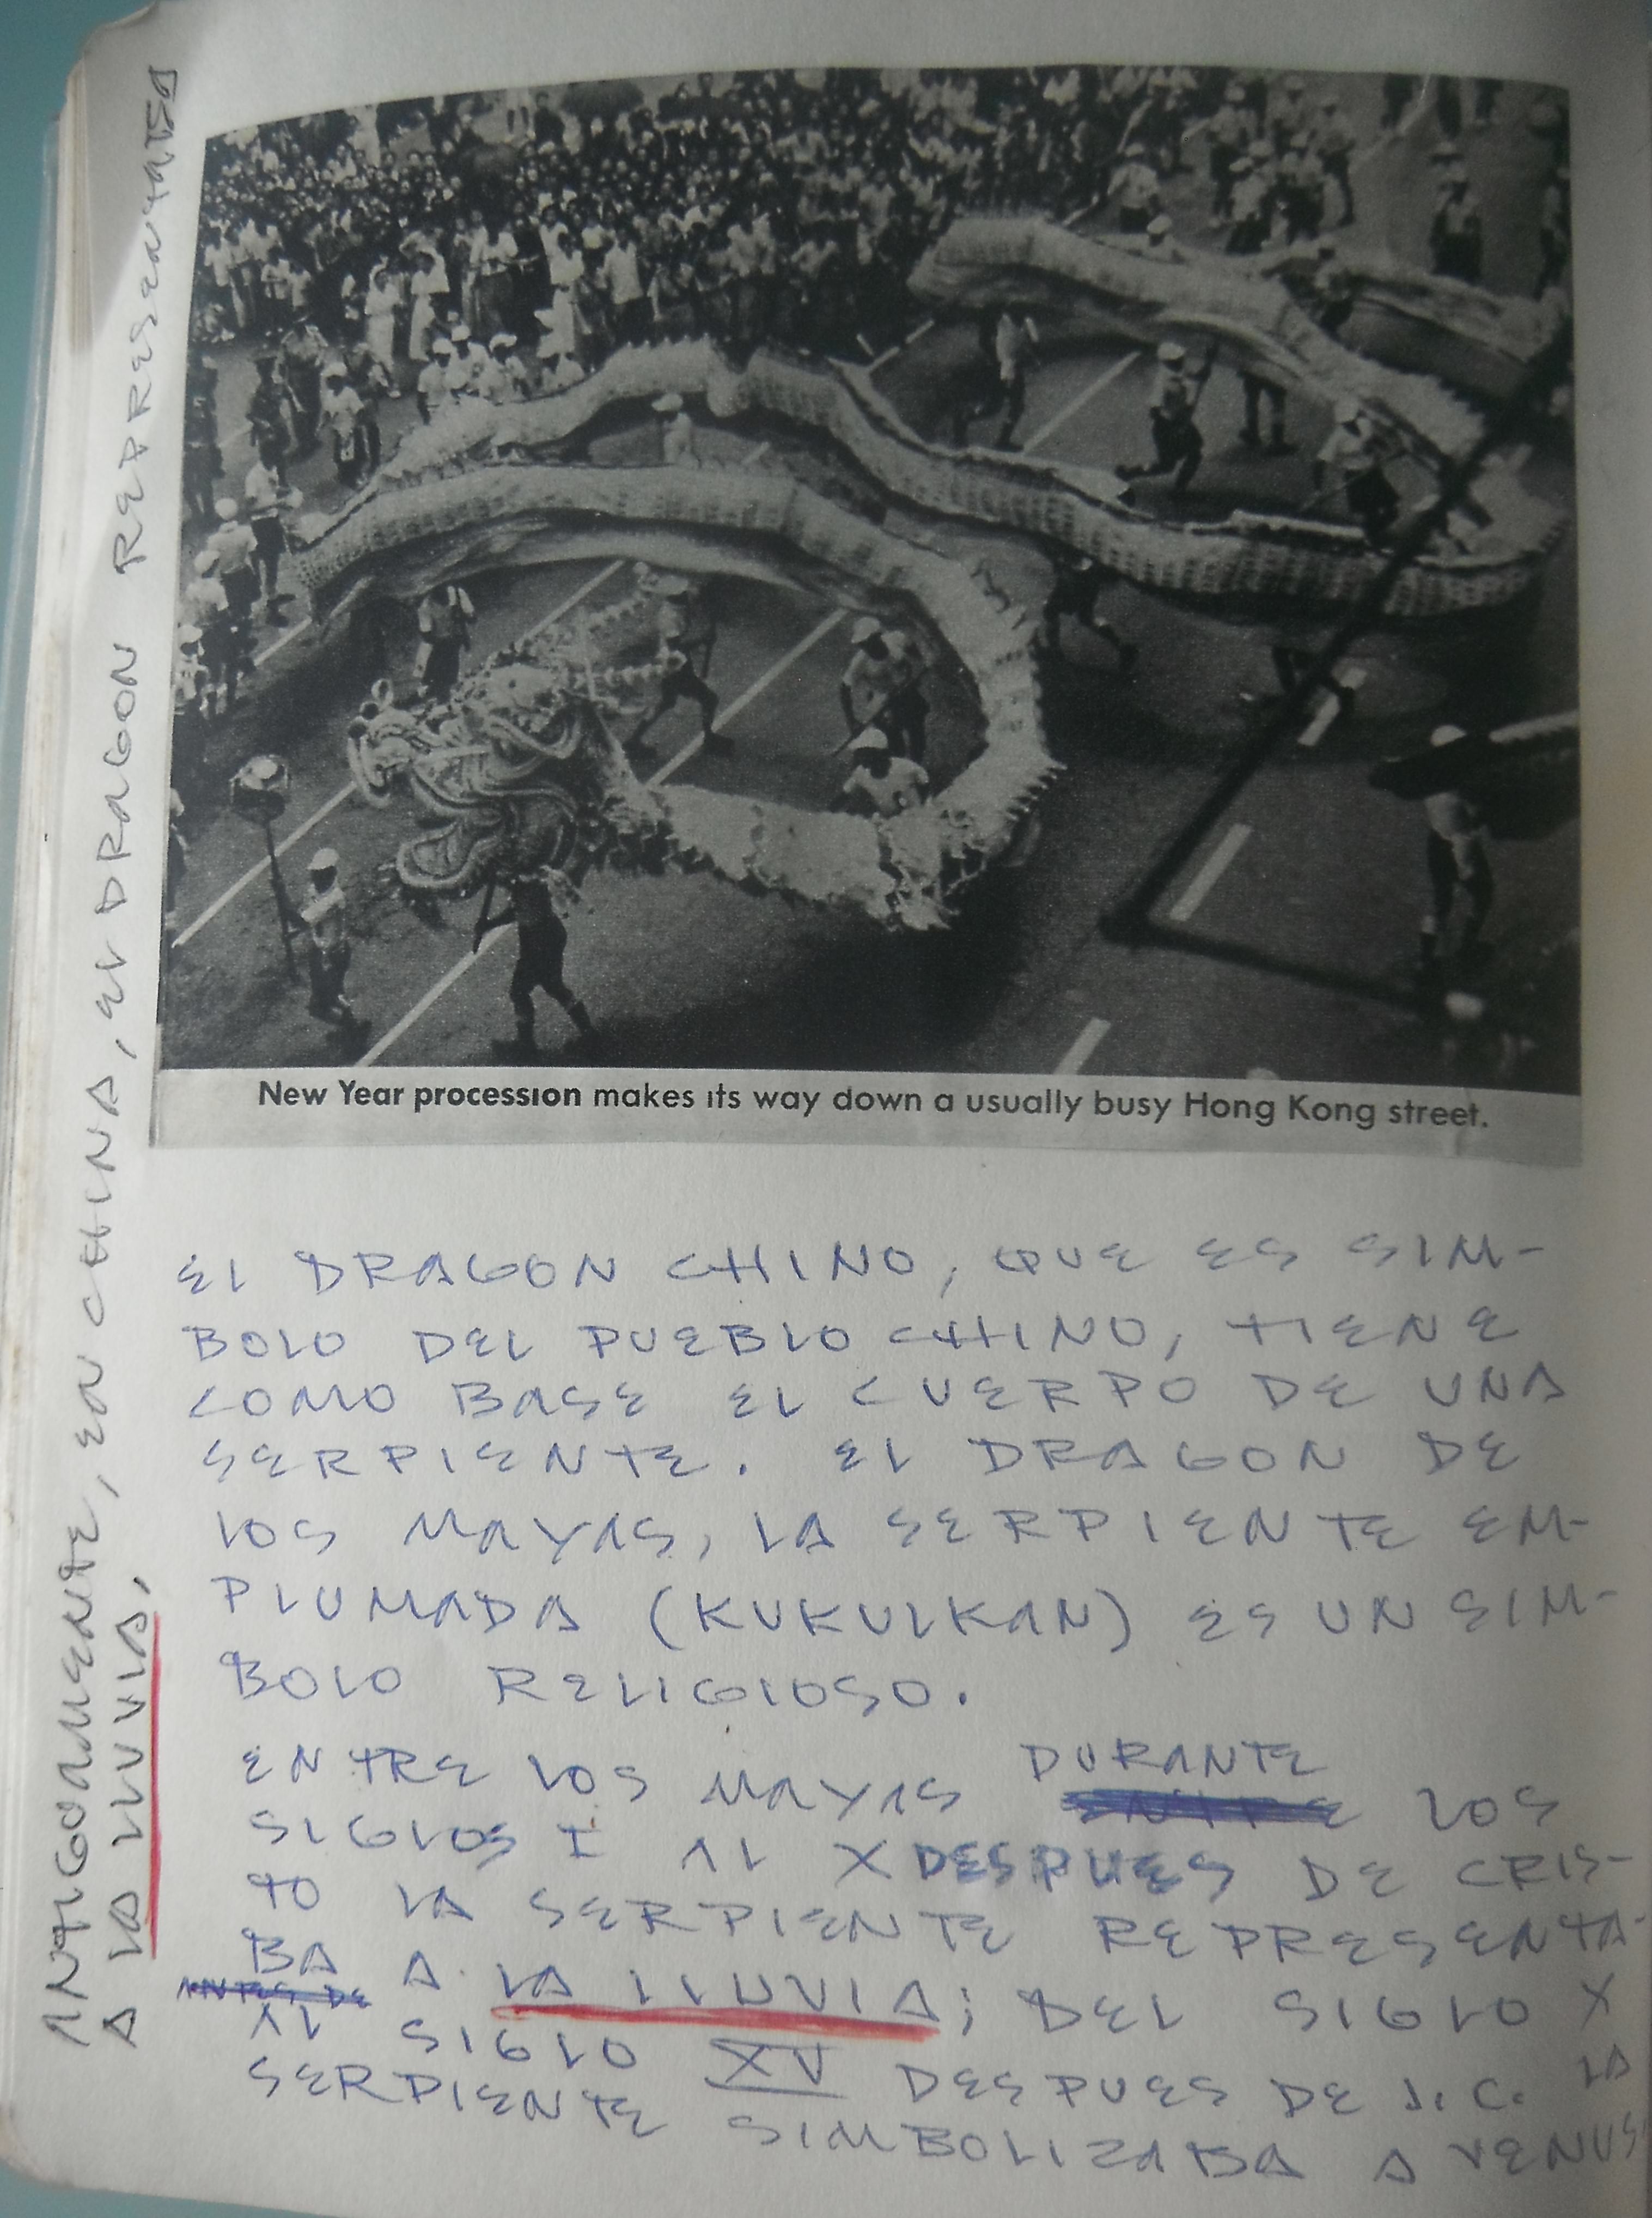 New Year procession makes its way down a usually busy Hong Kong street.
EL DRAGON CHINO, QUE ES SIM-
BOLO DEL PUEBLO CHINO, TIENE
COMO BASE EL CUERPO DE UNA
SERPIENTE. EL DRAGON DE
LOS MAYAS, LA SERPIENTE EM-
PLUMADA (KUKULKAN) ES UN SIM-
BOLO RELIGIOSO.
ENTRE LOS MAYAS DURANTE LOS
SIGLOS I AL X DESPUES DE CRIS-
TO LA SERPIENTE REPRESENTA-
BA A LA LLUVIA; DEL SIGLO X
AL SIGLO XV DESPUES DE J.C. LA
SERPIENTE SIMBOLIZABA A VENUS
ANTIGUAMENTE, EN CHINA, EL DRAGON REPRESENTABA
A LA LLUVIA.